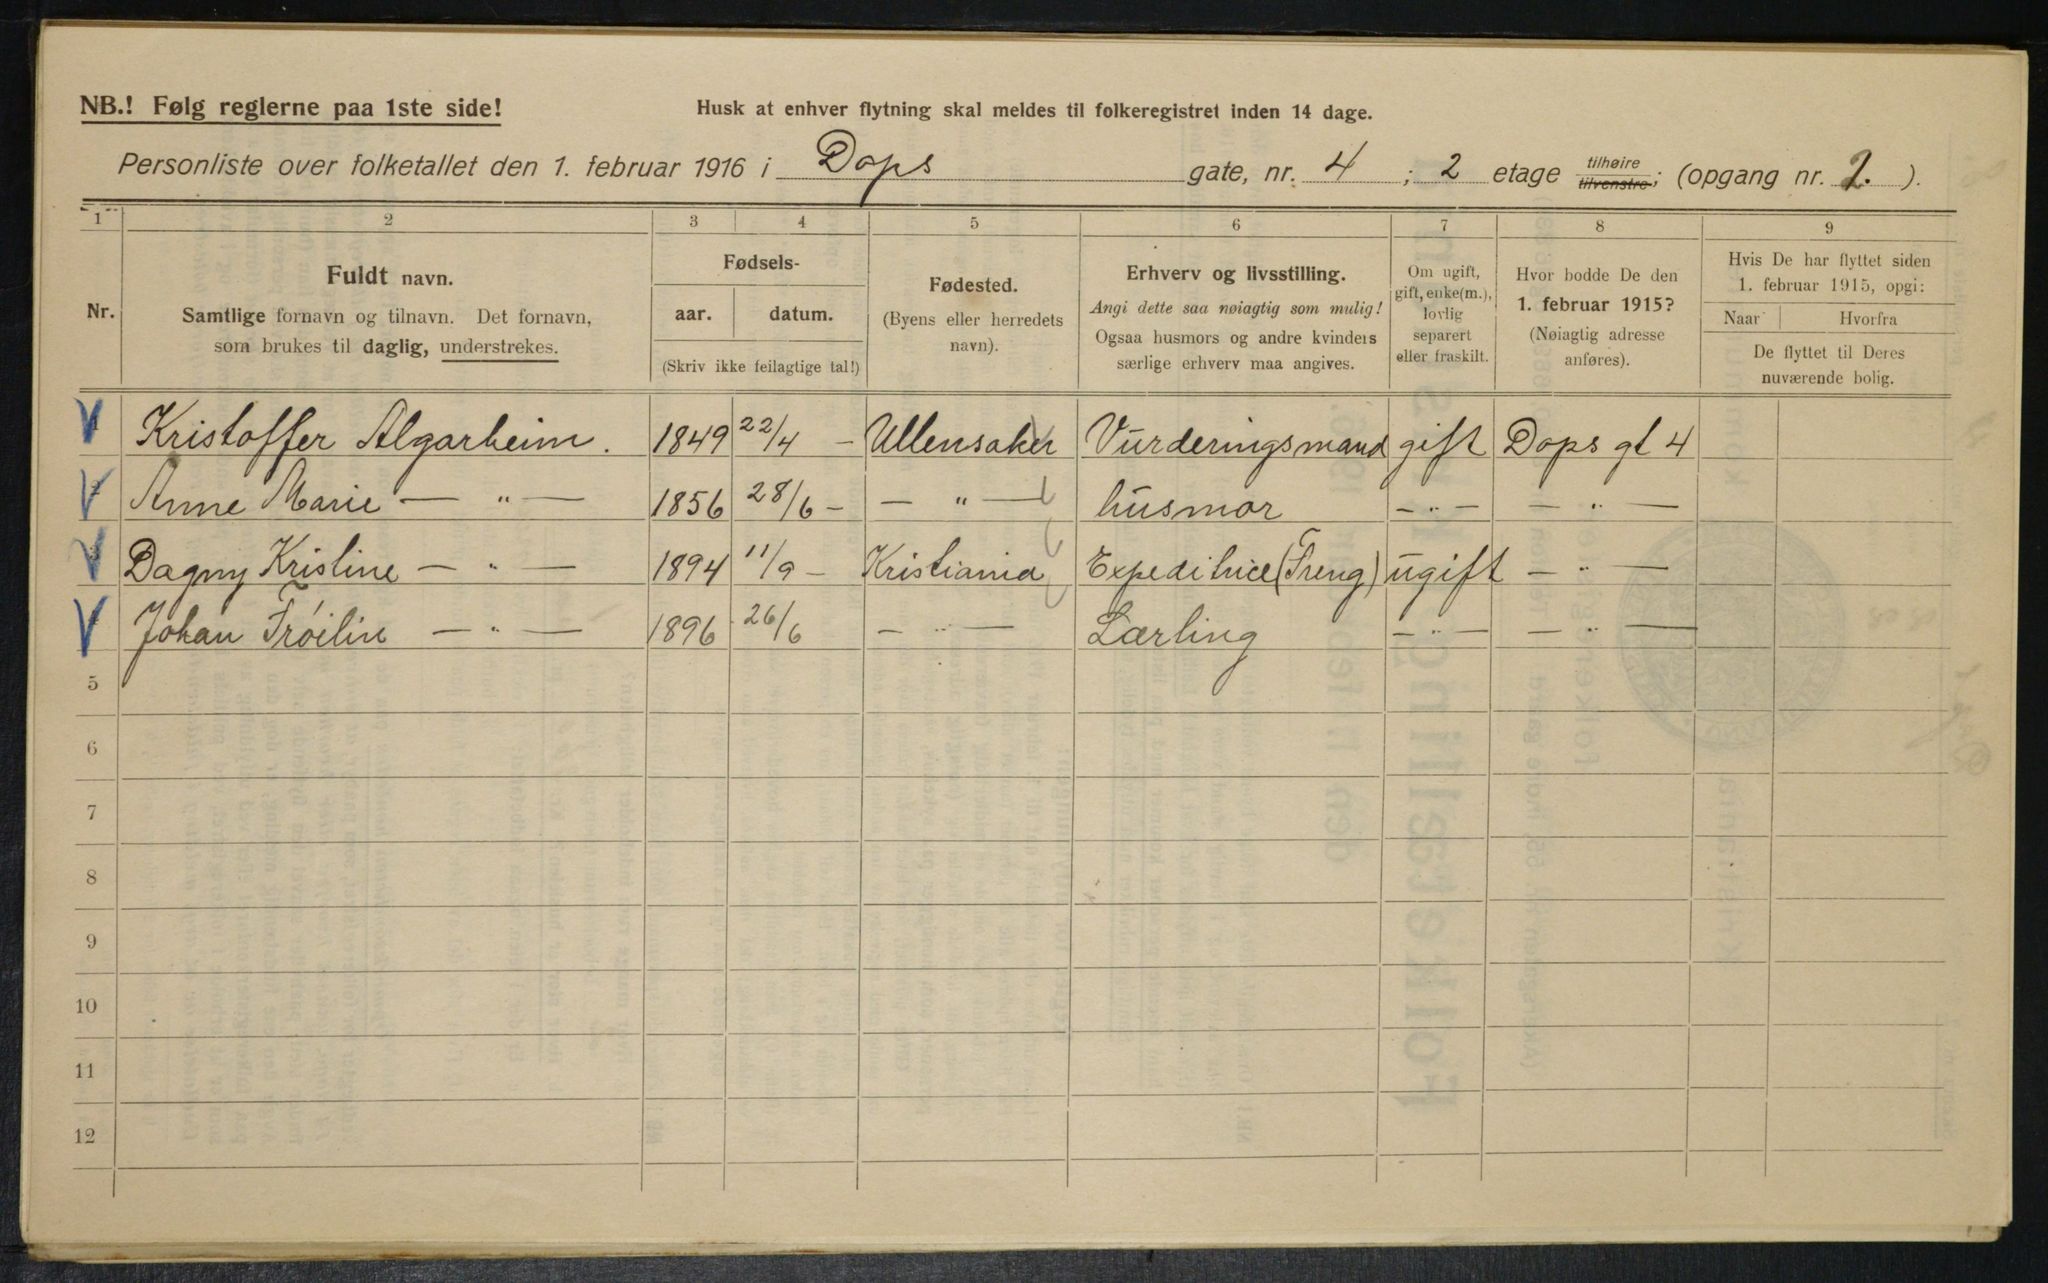 NB.! Følg reglerne paa 1ste side!
Husk at enhver flytning skal meldes til folkeregistret inden 14 dage.
Personliste over folketallet den 1. februar 1916 i Dops gate, nr. 4; 2 etage tilhøire tilvenstre; (opgang nr. 2.).
1 2 3 4 5 6 7 8 9
Nr.
Fuldt navn.
Samtlige fornavn og tilnavn. Det fornavn,
som brukes til daglig, understrekes.
Fødsels-
aar. datum.
(Skriv ikke feilagtige tal!)
Fødested.
(Byens eller herredets
navn).
Erhverv og livsstilling.
Angi dette saa nøiagtig som mulig!
Ogsaa husmors og andre kvinders
særlige erhverv maa angives.
Om ugift,
gift, enke(m.),
lovlig
separert
eller fraskilt.
Hvor bodde De den
1. februar 1915?
(Nøiagtig adresse
anføres).
Hvis De har flyttet siden
1. februar 1915, opgi:
Naar Hvorfra
De flyttet til Deres
nuværende bolig.
Kristoffer Algarheim. 1849 22/4 — Ullensaker Vurderingsmand gift Dops gt 4
Anne Marie — " — 1856 28/6 — — " — husmor — " — — " —
Dagny Kristine — " — 1894 11/9 — Kristiania Expeditrice (Treng) ugift — " —
Johan Trøilin — " — 1896 26/6 — " — Lærling — " — — " —
5
6
7
8
9
10
11
12